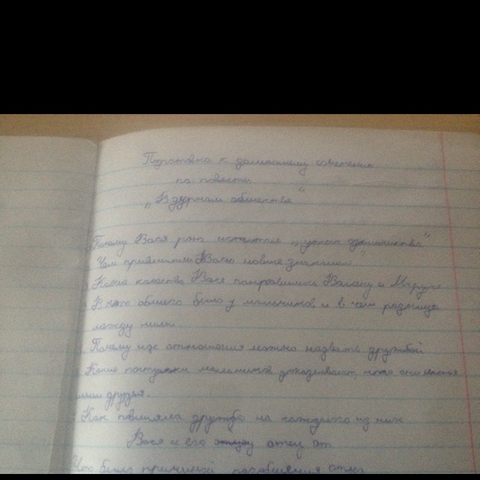 Подготовка к домашнему сочинению
по повести
„В дурном обществе“
Почему Вася рано испытал „ужас одиночества“
Чем привлекли Васю новые знакомые
Какие качества Васе понравились Валеку и Марусе
В чего общего было у мальчиков и в чем разница
между ними
Почему их отношения можно назвать дружбой
Какие поступки мальчиков доказывают, что они
друзья.
Как повлияла дружба на каждого из них
Вася и его отец от
Что было причиной отца